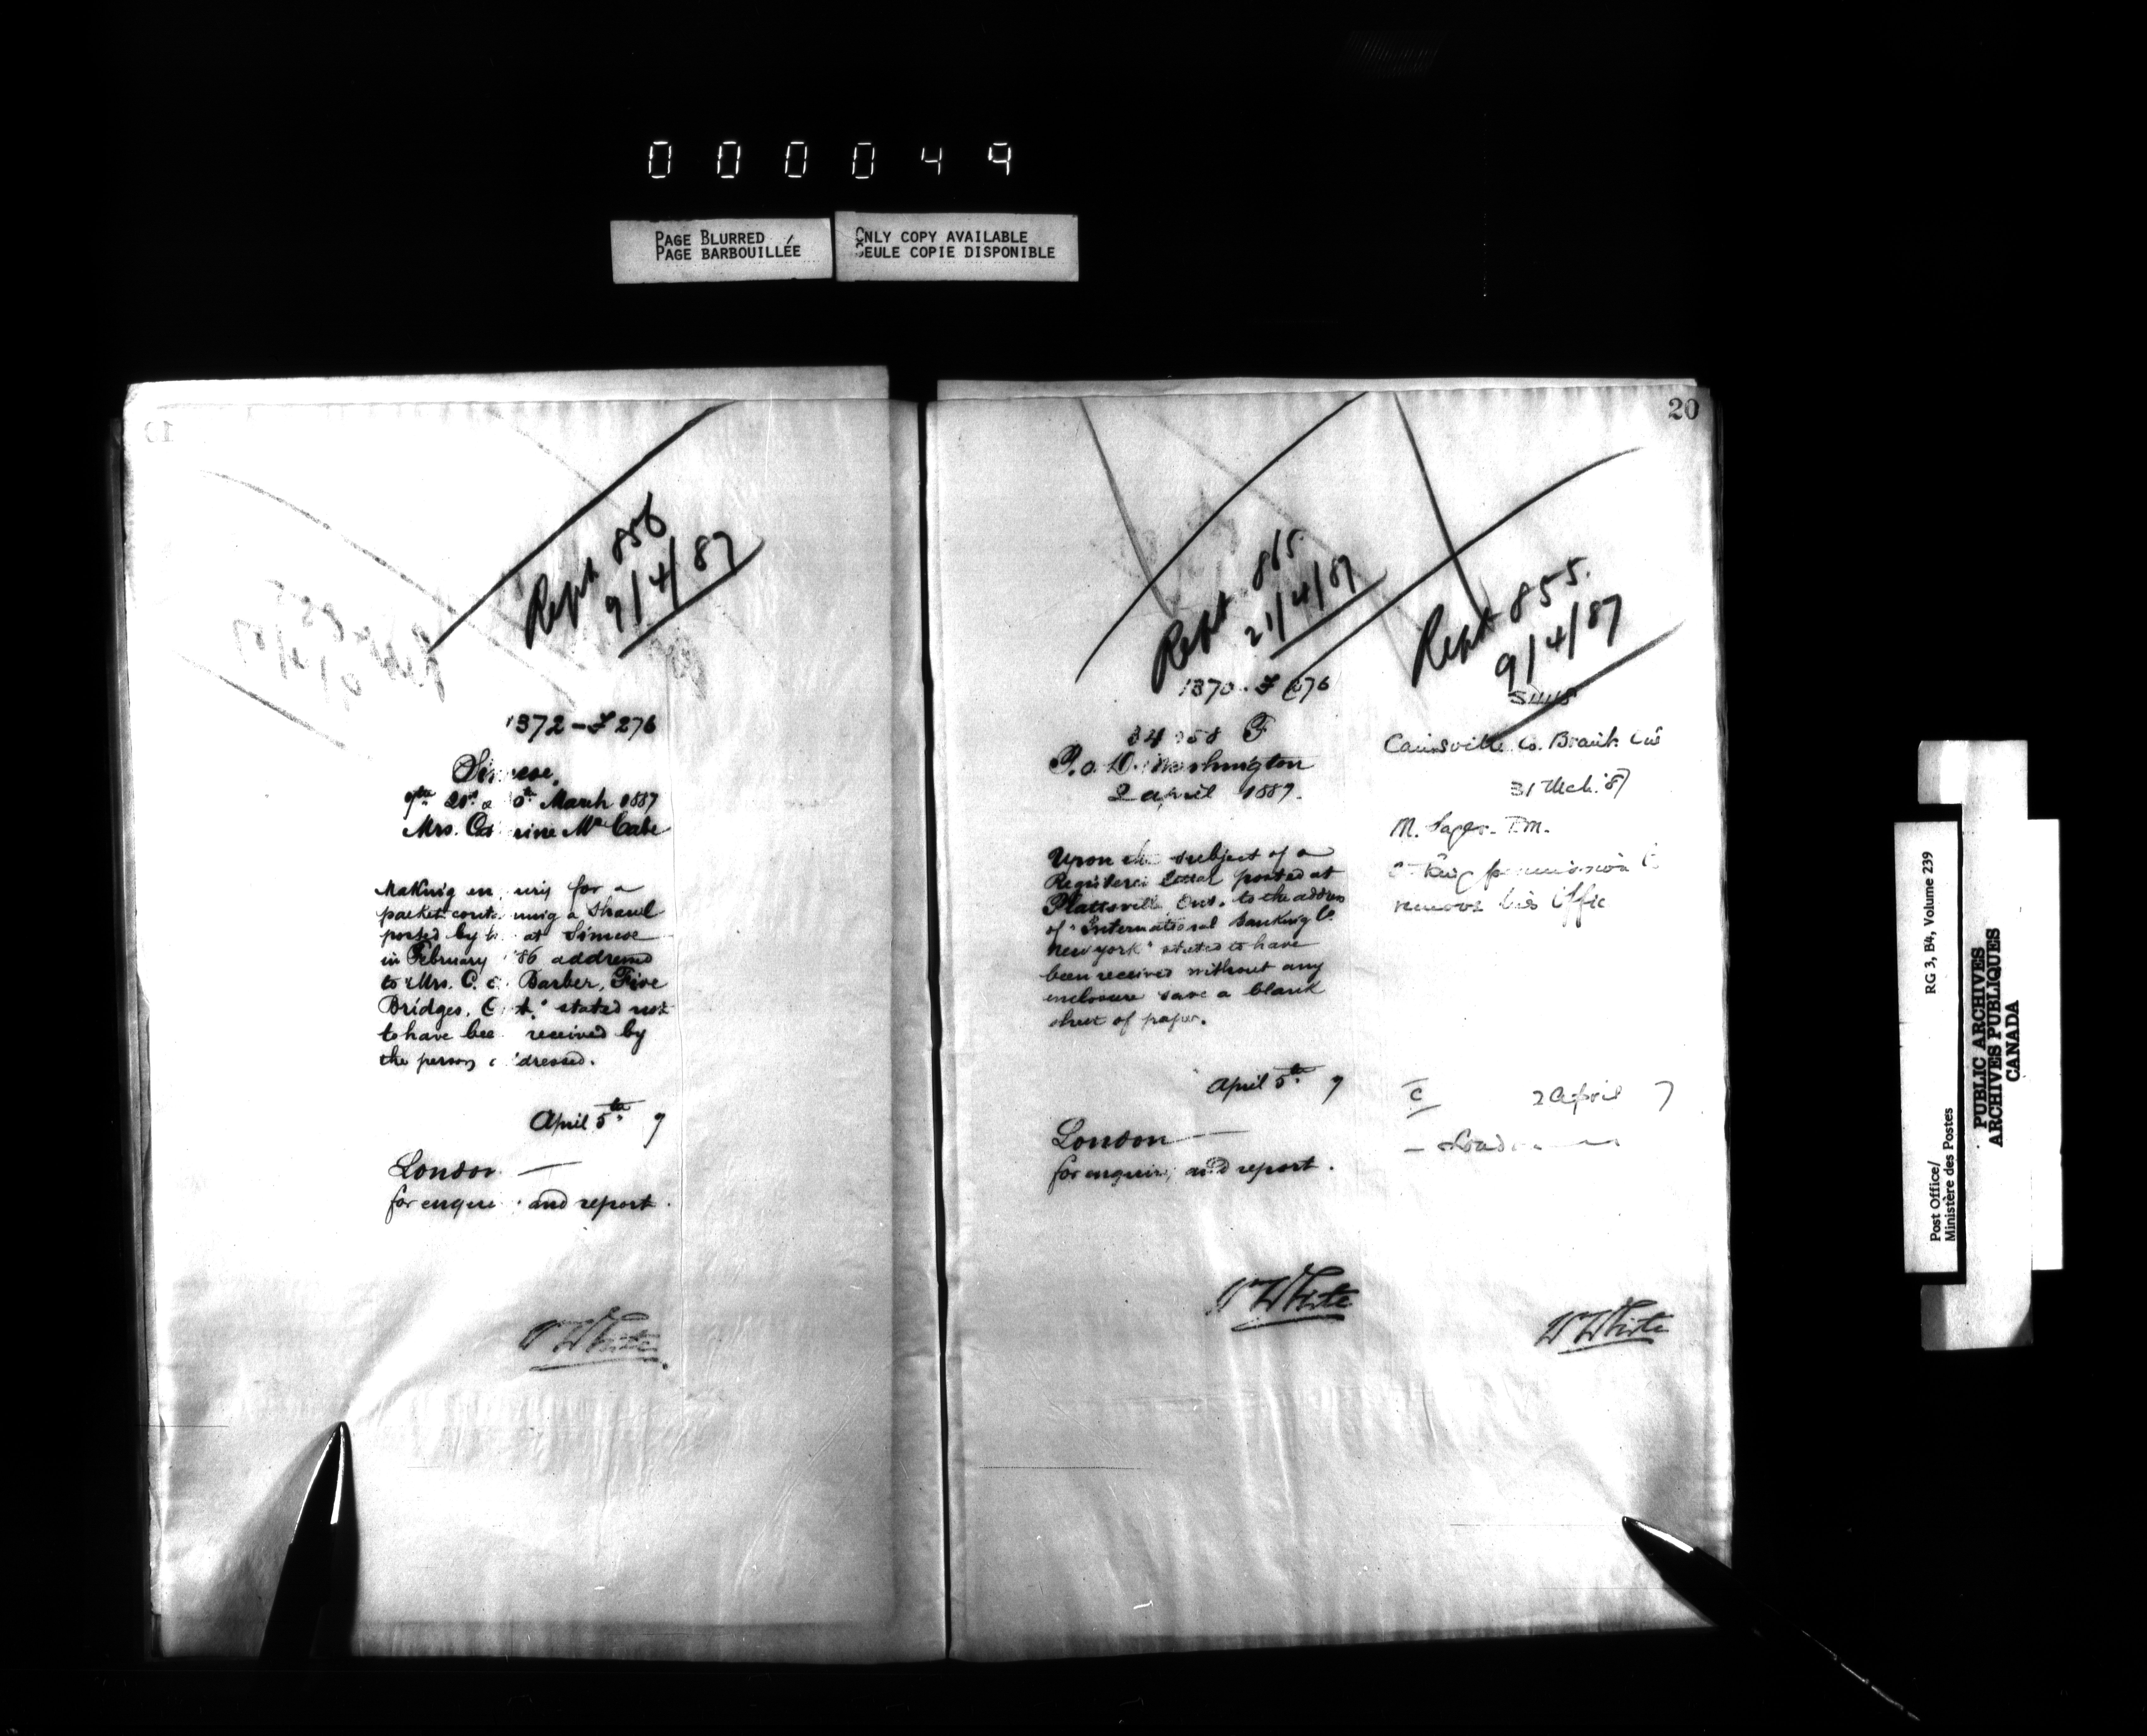 000049
PAGE BLURRED
PAGE BARBOUILLÉE
ONLY COPY AVAILABLE
SEULE COPIE DISPONIBLE
Rept 856
9/4/87
1372 - F 276
Simcoe,
March 1887
Mrs. Catherine McCabe
Making enquiry for a
packet containing a Shawl
posted by at Simcoe
in February '86 addressed
to "Mrs. C. Barber, Five
Bridges, stated not
to have been received by
the person addressed.
April 5th 7
London —
for enquiry and report.
W White
20
Rept 865
21/4/87
1370 - F 276
P.O.D. Washington
2 April 1887.
Upon the subject of a
Registered letter posted at
Plattsville, Ont. to the address
of "International Banking Co.
New York" stated to have
been received without any
enclosure save a blank
sheet of paper.
April 5th 7
London —
for enquiry and report.
W White
Rept 855.
9/4/87
Cainsville Co. Brant. Ont
31 Mch. '87
M. Sager. P.M.
permission to
remove his Office
2 April 7
W White
Post Office/
Ministère des Postes
RG 3, B4, Volume 239
PUBLIC ARCHIVES
ARCHIVES PUBLIQUES
CANADA